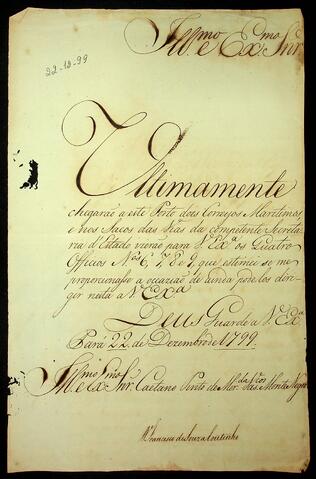 Illmo. e Exmo. Snr.
22-12-99
Ultimamente
chegarão a este Porto dois Correyos Maritimos,
e nos Sacos das Vias da competente Secreta-
ria d'Estado vierão para V. Exa. os Quatro
Officios Nos. 6, 7, 8 e 9, que estimei se me
proporcionasse a occazião de ainda poder diri-
gir nesta a V. Exa.
Deus Guarde a V. Exa.
Pará 22 de Dezembro de 1799.
Illmo. e Exmo. Snr. Caetano Pinto de Mirda. Montenegro
D. Francisco de Souza Coutinho